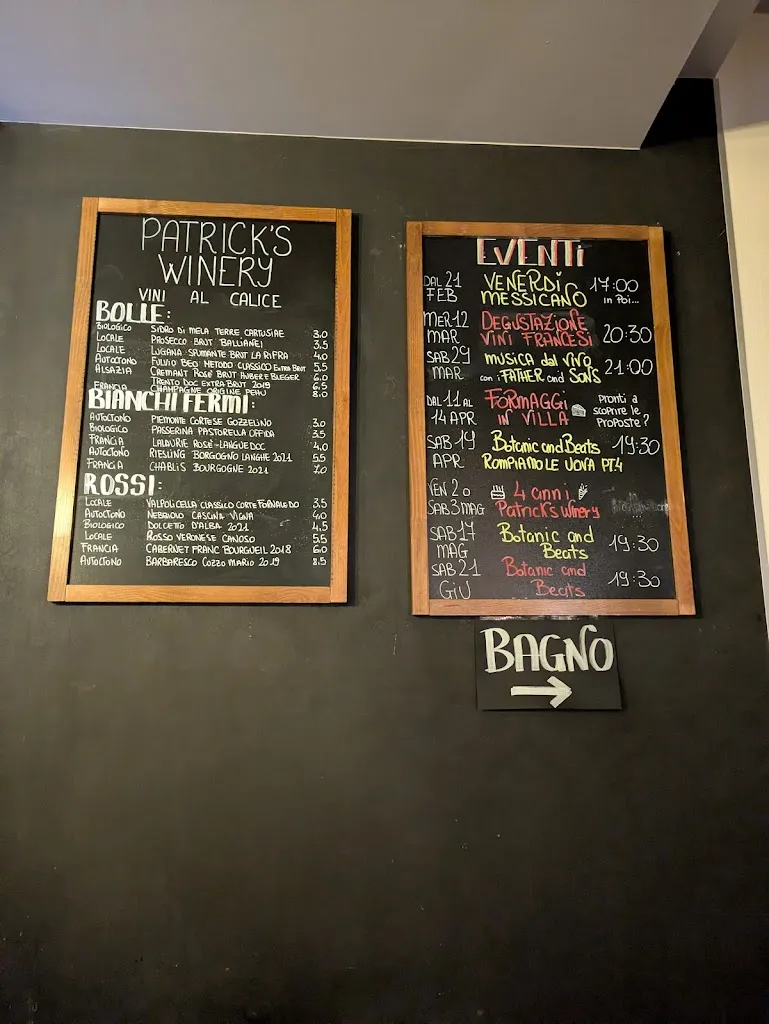 PATRICK'S
WINERY
VINI AL CALICE
BOLLE:
BIOLOGICO SIDRO DI MELA TERRE CARTUSIAE 3.0
LOCALE PROSECCO BRUT BALLIANEI 3.5
LOCALE LUGANA SPUMANTE BRUT LA RIFRA 4.0
AUTOCTONO FULVIO BEO METODO CLASSICO EXTRA BRUT 5.5
ALSAZIA CREMANT ROSÉ BRUT HUBER E BLEGER 6.0
TRENTO DOC EXTRA BRUT 2019 6.5
FRANCIA CHAMPAGNE ORIGINE 8.0
BIANCHI FERMI:
AUTOCTONO PIEMONTE CORTESE GOZZELINO 3.0
BIOLOGICO PASSERINA PASTORELLA OFFIDA 3.5
FRANCIA LALAURIE ROSÈ-LANGUEDOC 4.0
AUTOCTONO RIESLING BORGOGNO LANGHE 2021 5.5
FRANCIA CHABLIS BOURGOGNE 2021 7.0
ROSSI:
LOCALE VALPOLICELLA CLASSICO CORTE FORNALEDO 3.5
AUTOCTONO NEBBIOLO CASCINA VIGNA 4.0
BIOLOGICO DOLCETTO D'ALBA 2021 4.5
LOCALE ROSSO VERONESE CANOSO 5.5
FRANCIA CABERNET FRANC BOURGUEIL 2018 6.0
AUTOCTONO BARBARESCO COZZO MARIO 2019 8.5
EVENTI
DAL 21 FEB VENERDÌ MESSICANO 17:00 in poi...
MER 12 MAR DEGUSTAZIONE VINI FRANCESI 20:30
SAB 29 MAR MUSICA dal VIVO con i FATHER and SONS 21:00
DAL 11 AL 14 APR FORMAGGI IN VILLA PRONTI a scoprire le PROPOSTE?
SAB 19 APR Botanic and Beats ROMPIAMO LE UOVA PT.4 19:30
VEN 2 o SAB 3 MAG 4 anni Patrick's Winery
SAB 17 MAG Botanic and Beats 19:30
SAB 21 GIU Botanic and Beats 19:30
BAGNO